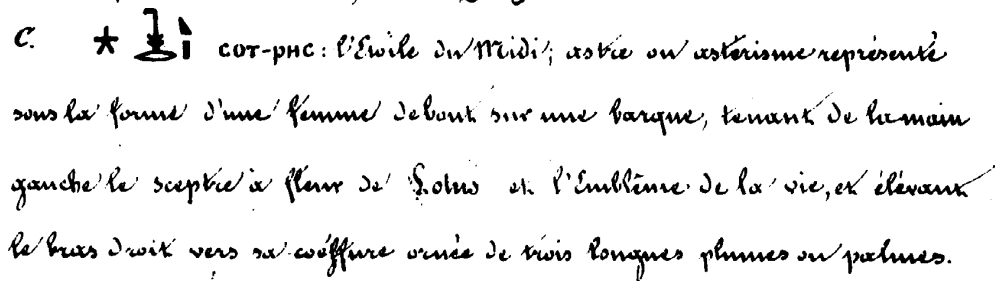 C. ⲥⲟⲧ-ⲣⲏⲥ : l'Etoile du Midi; astre ou astérisme représenté
sous la forme d'une femme debout sur une barque, tenant de la main
gauche le sceptre à fleur de Lotus et l'Emblême de la vie, et élévant
le bras droit vers sa coëffure ornée de trois longues plumes ou palmes.